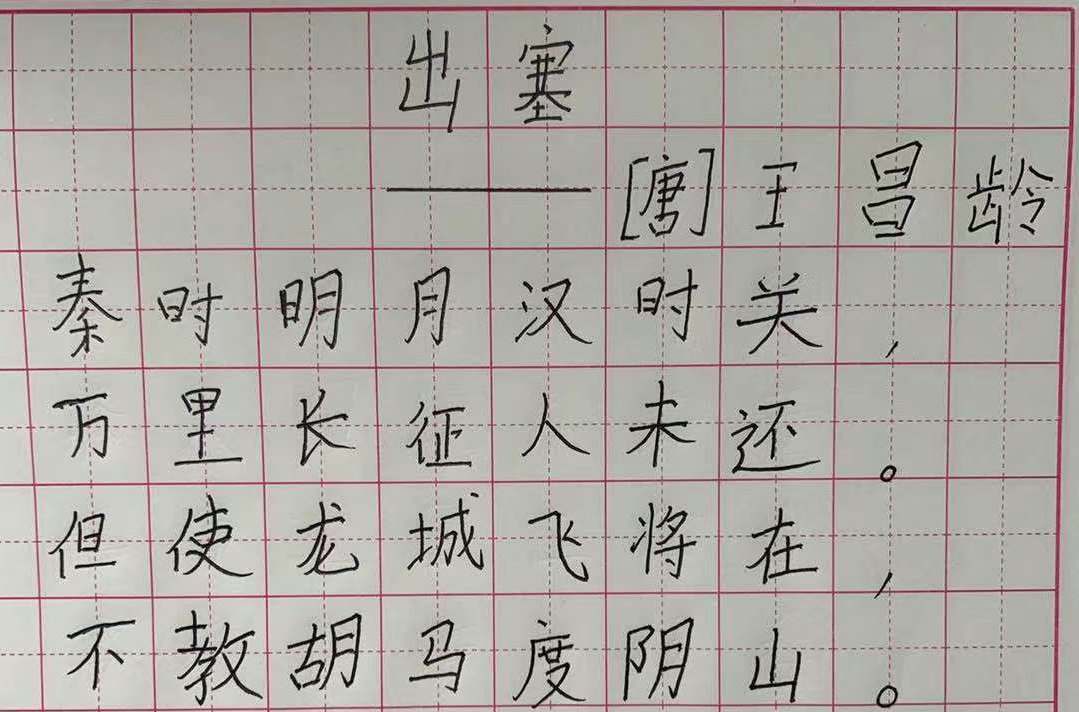 出塞
——[唐]王昌龄
秦时明月汉时关,
万里长征人未还。
但使龙城飞将在,
不教胡马度阴山。